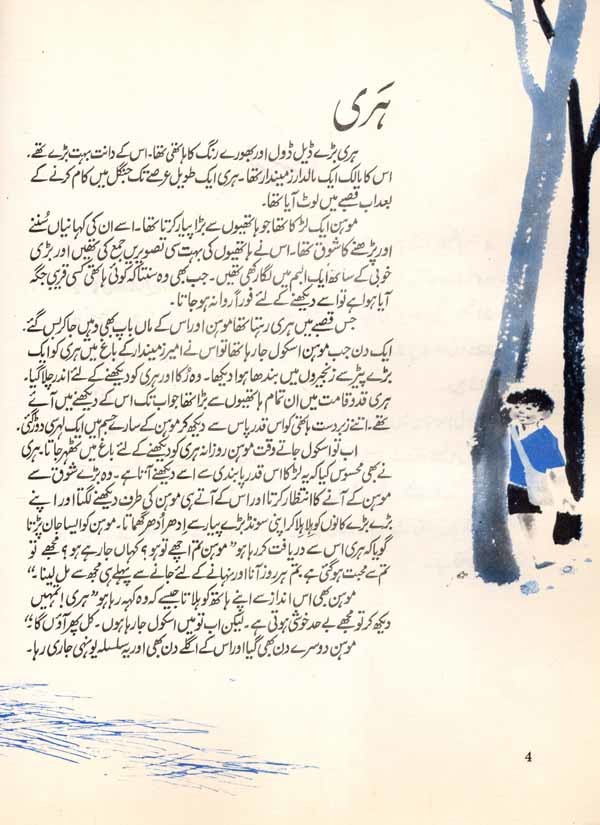 ہَری
ہری بڑے ڈیل ڈول اور بھورے رنگ کا ہاتھی تھا۔ اس کے دانت بہت بڑے تھے۔
اس کا مالک ایک مالدار زمیندار تھا۔ ہری ایک طویل عرصے تک جنگل میں کام کرنے کے
بعد اب قصبے میں لوٹ آیا تھا۔
موہن ایک لڑکا تھا جو ہاتھیوں سے بڑا پیار کرتا تھا۔ اسے ان کی کہانیاں سُننے
اور پڑھنے کا شوق تھا۔ اس نے ہاتھیوں کی بہت سی تصویریں جمع کی تھیں اور بڑی
خوبی کے ساتھ ایک البم میں لگا رکھی تھیں۔ جب بھی وہ سنتا کہ کوئی ہاتھی کسی قریبی جگہ
آیا ہوا ہے تو اسے دیکھنے کے لئے فوراً روانہ ہو جاتا۔
جس قصبے میں ہری رہتا تھا موہن اور اس کے ماں باپ بھی وہیں جا کر بس گئے۔
ایک دن جب موہن اسکول جا رہا تھا تو اس نے امیر زمیندار کے باغ میں ہری کو ایک
بڑے پیڑ سے زنجیروں میں بندھا ہوا دیکھا۔ وہ رُکا اور ہری کو دیکھنے کے لئے اندر چلا گیا۔
ہری قد و قامت میں ان تمام ہاتھیوں سے بڑا تھا جو اب تک اس کے دیکھنے میں آئے
تھے۔ اتنے زبردست ہاتھی کو اس قدر پاس سے دیکھ کر موہن کے سارے جسم میں ایک لہر سی دوڑ گئی۔
اب تو اسکول جاتے وقت موہن روزانہ ہری کو دیکھنے کے لئے باغ میں ٹھہر جاتا۔ ہری
نے بھی محسوس کیا کہ یہ لڑکا اس قدر پابندی سے اسے دیکھنے آتا ہے۔ وہ بڑے شوق سے
موہن کے آنے کا انتظار کرتا اور اس کے آتے ہی موہن کی طرف دیکھنے لگتا اور اپنے
بڑے بڑے کانوں کو ہلا ہلا کر اپنی سونڈ بڑے پیار سے اِدھر اُدھر گھماتا۔ موہن کو ایسا جان پڑتا
گویا کہ ہری اس سے دریافت کر رہا ہو ”موہن تم اچھے تو ہو؟ کہاں جا رہے ہو؟ مجھے تو
تم سے محبت ہو گئی ہے۔ تم ہر روز آنا اور نہانے کے لئے جانے سے پہلے ہی مجھ سے مل لینا۔“
موہن بھی اس انداز سے اپنے ہاتھ کو ہلاتا جیسے کہ وہ کہہ رہا ہو ”ہری! تمہیں
دیکھ کر تو مجھے بے حد خوشی ہوتی ہے۔ لیکن اب تو میں اسکول جا رہا ہوں۔ کل پھر آؤں گا۔“
موہن دوسرے دن بھی گیا اور اس کے اگلے دن بھی اور یہ سلسلہ یونہی جاری رہا۔
4